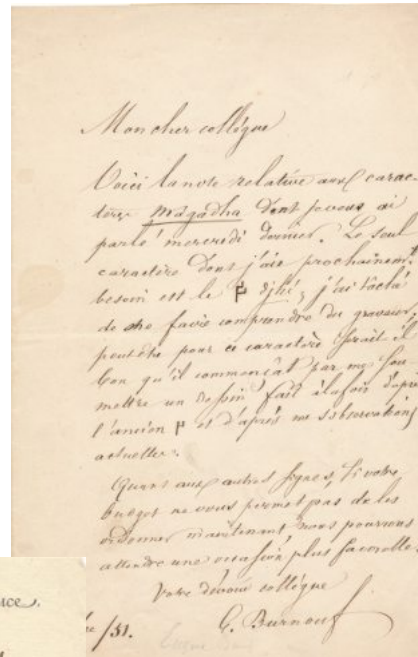 Mon cher collégue
Voici la note relative aux carac-
tères Magadha dont je vous ai
parlé mercredi dernier. Le seul
caractère dont j'aie prochainemt
besoin est le djhé, j'ai tâché
de me faire comprendre du graveur;
peut être pour ce caractère serait il
bon qu'il commençât par me sou
mettre un dessin fait à la fois d'après
l'ancien et d'après mes observations
actuelles.
Quant aux autres signes, si votre
budget ne vous permet pas de les
ordonner maintenant nous pourrons
attendre une occasion plus favorable.
Votre dévoué collégue
E. Burnouf
/51.
nce.